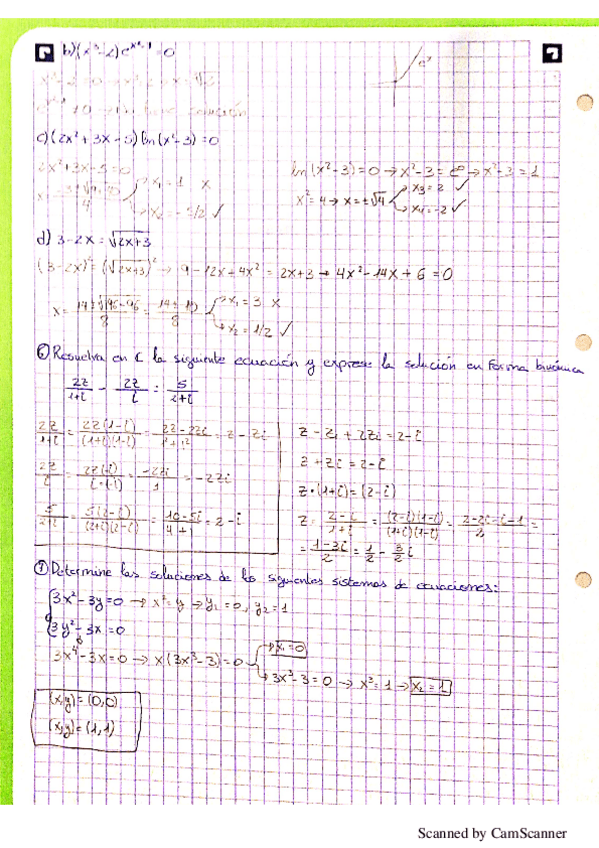 b) (x³-2) e^(x²-1) = 0
c) (2x²+3x-5) ln(x²-3) = 0
2x²+3x-5=0
x₁=1 x
x₂=-5/2 ✓
ln(x²-3)=0 → x²-3=e⁰ → x²-3=1
x²=4 → x=±√4
x₃=2 ✓
x₄=-2 ✓
d) 3-2x=√(2x+3)
(3-2x)²=(√(2x+3))² → 9-12x+4x²=2x+3 → 4x²-14x+6=0
x₁=3 x
x₂=1/2 ✓
⑥ Resuelva en C la siguiente ecuación y exprese la solución en forma binómica
2z/(1+i) - 2z/i = 5/(2+i)
2z/(1+i) = 2z(1-i)/((1+i)(1-i)) = = z-zi
= -2zi/1 = -2zi
5/(2+i) = 5(2-i)/((2+i)(2-i)) = (10-5i)/(4+1) = 2-i
z-zi+2zi=2-i
z+zi=2-i
z·(1+i)=(2-i)
z=(2-i)/(1+i)=(2-i)(1-i)/((1+i)(1-i))=(2-2i-i-1)/2=
=(1-3i)/2=1/2-3/2 i
⑦ Determine las soluciones de los siguientes sistemas de ecuaciones:
3x²-3y=0 → x²=y → y₁=0, y₂=1
3y²-3x=0
3x⁴-3x=0 → x(3x³-3)=0
x₁=0
3x³-3=0 → x³=1 → x₂=1
(x,y)=(0,0)
(x,y)=(1,1)
Scanned by CamScanner